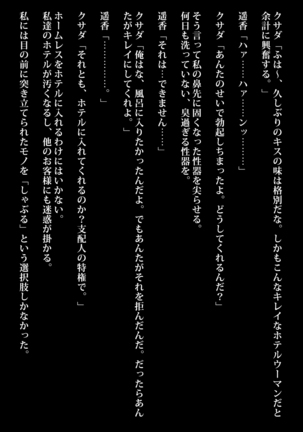 クサダ「ふは〜、久しぶりのキスの味は格別だな。しかもこんなキレイなホテルウーマンだと
余計に興奮する。」
遥香「ハァ……ハァ……ンッ……」
クサダ「あんたのせいで勃起しちまったよ。どうしてくれるんだ？」
そう言って私の鼻先に固くなった性器を尖らせる。
何日も洗っていない、臭過ぎる性器を。
遥香「それは…できません……」
クサダ「俺はな、風呂に入りたかったんだよ。でもあんたがそれを拒んだんだ。だったらあん
たがキレイにしてくれよ。」
遥香「…………。」
クサダ「それとも、ホテルに入れてくれるのか？支配人の特権で。」
ホームレスをホテルに入れるわけにはいかない。
私達のホテルが汚くなるし、他のお客様にも迷惑が掛かる。
私には目の前に突き立てられたモノを「しゃぶる」という選択肢しかなかった。